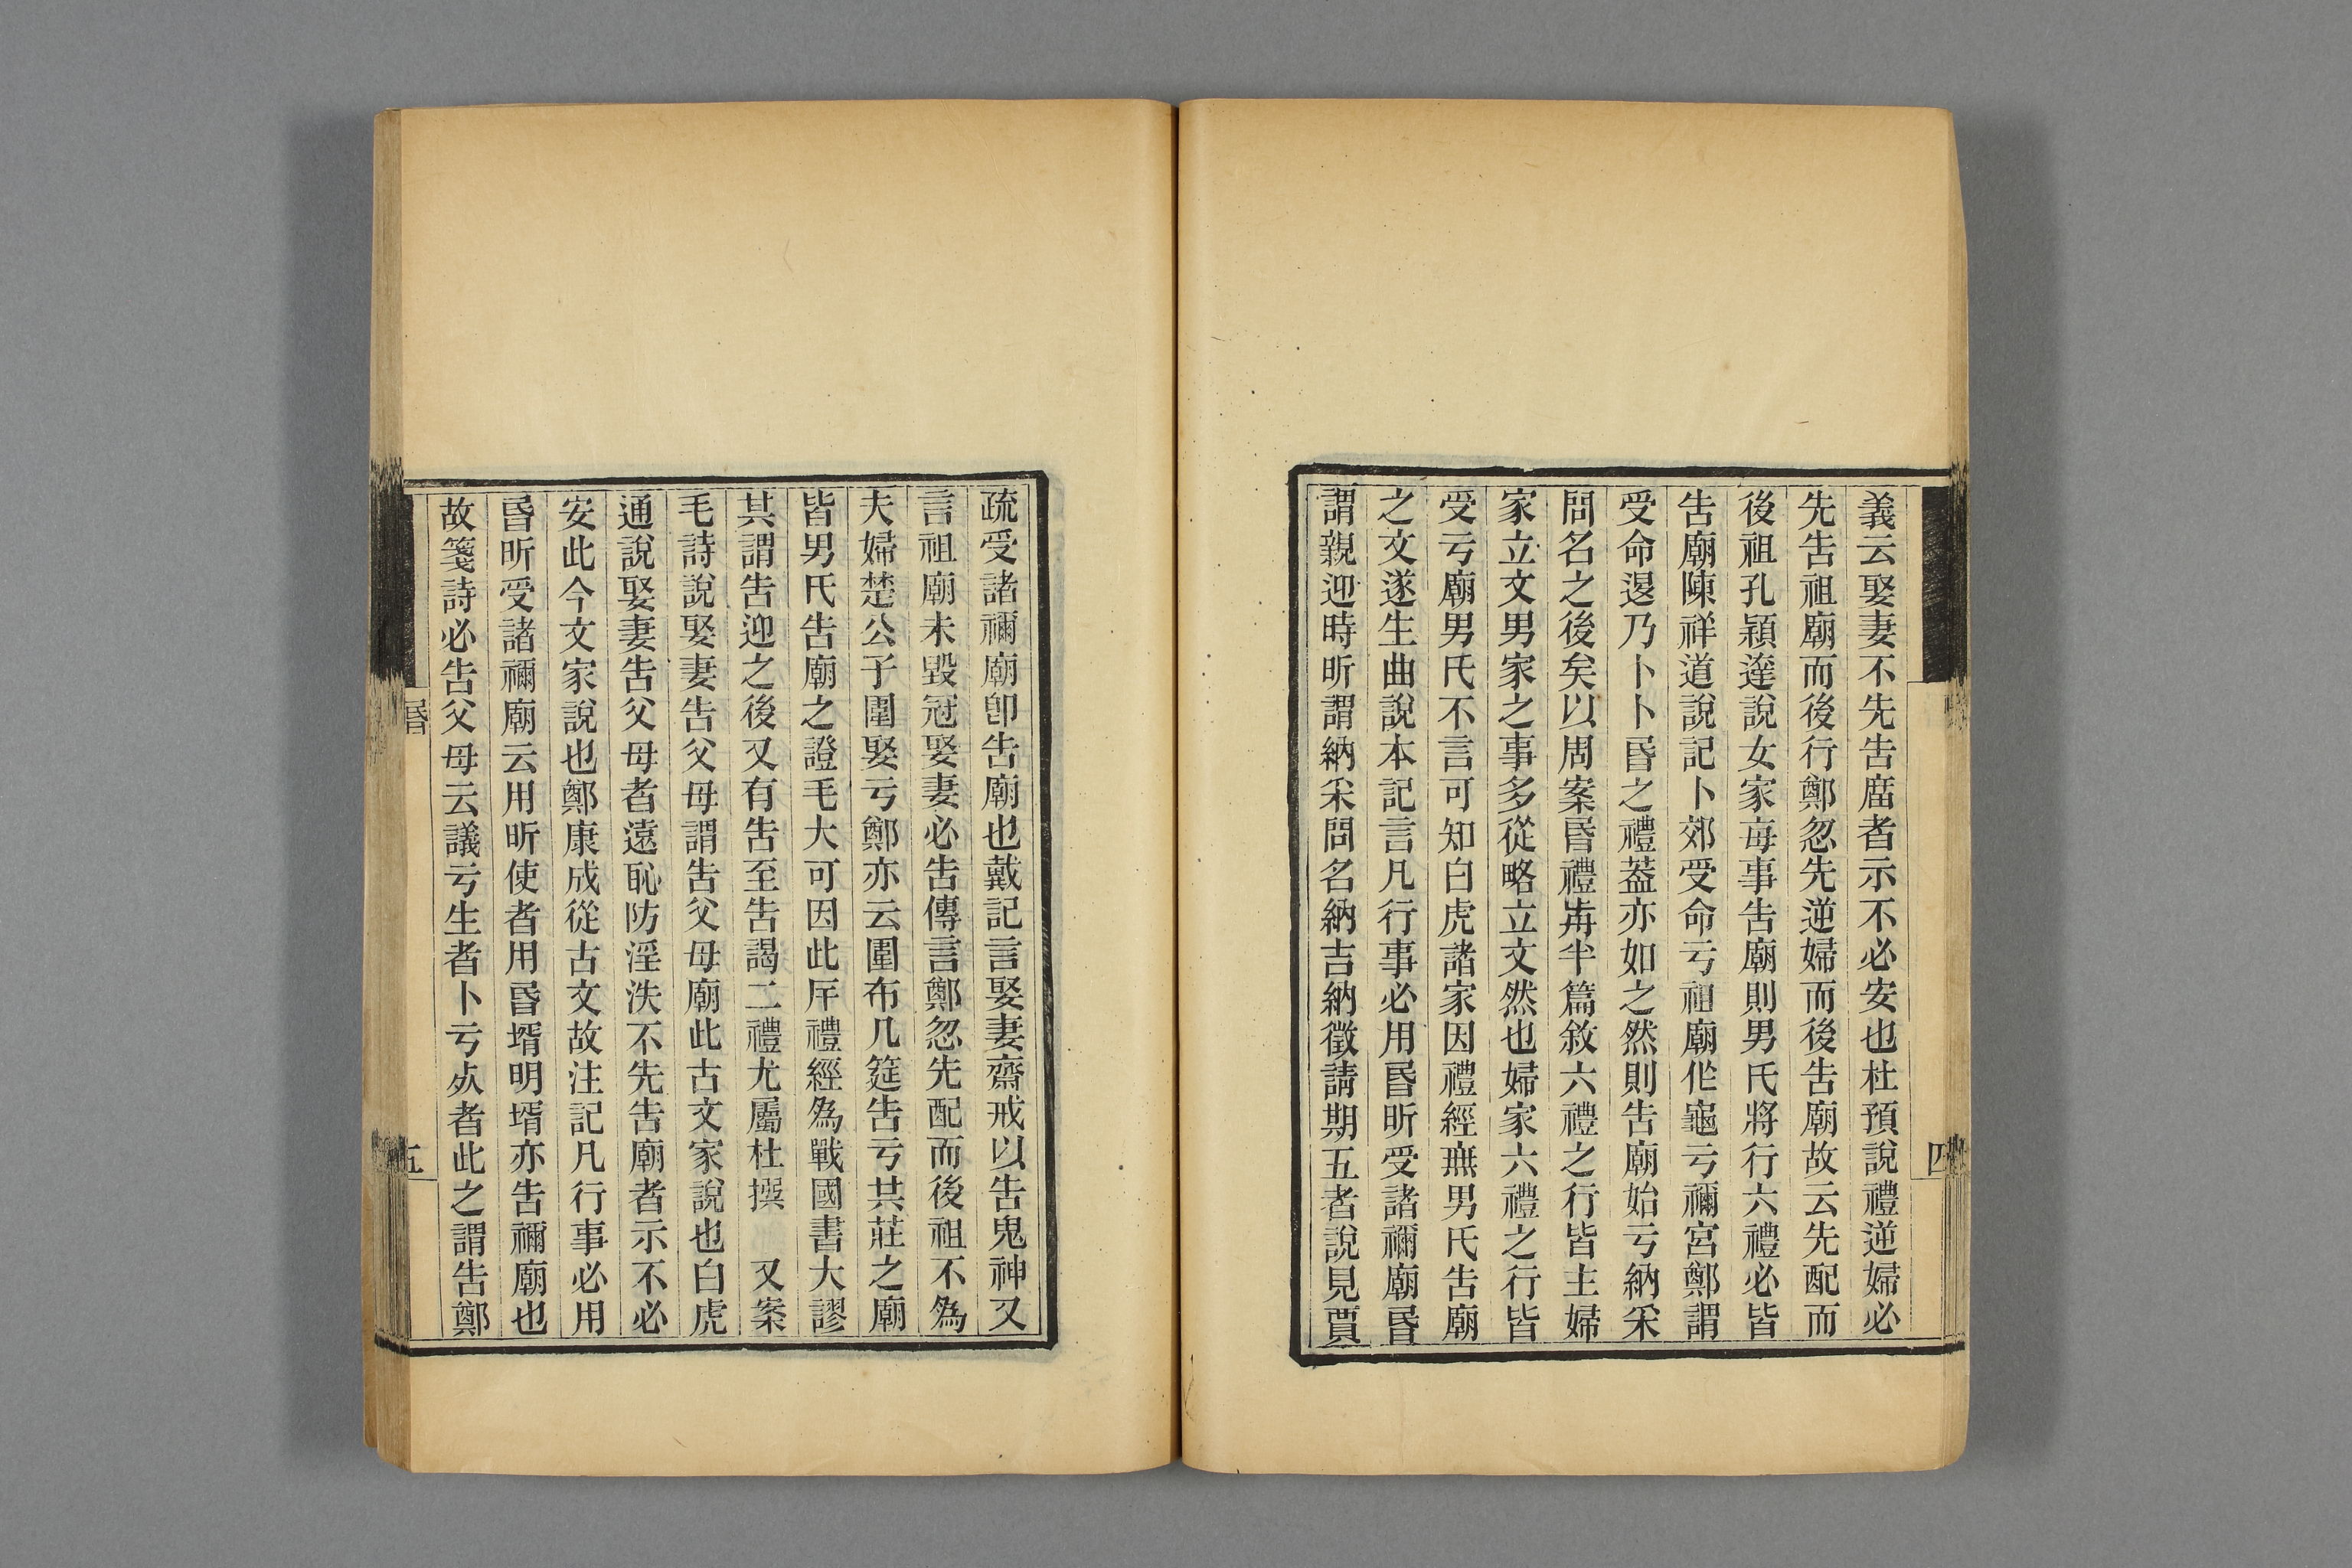 義云娶妻不先告庿者示不必安也杜預說禮逆婦必
先告祖廟而後行鄭忽先逆婦而後告廟故云先配而
後祖孔穎達說女家每事告廟則男氏將行六禮必皆
告廟陳祥道說記卜郊受命亏祖廟作龜亏禰宮鄭謂
受命退乃卜卜昏之禮蓋亦如之然則告廟始亏納采
問名之後矣以周案昏禮歬半篇敘六禮之行皆主婦
家立文男家之事多從略立文然也婦家六禮之行皆
受亏廟男氏不言可知白虎諸家因禮經無男氏告廟
之文遂生曲說本記言凡行事必用昏昕受諸禰廟昏
謂親迎時昕謂納采問名納吉納徵請期五者說見賈
四
疏受諸禰廟卽告廟也戴記言娶妻齋戒以告鬼神又
言祖廟未毀冠娶妻必告傳言鄭忽先配而後祖不為
夫婦楚公子圍娶亏鄭亦云圍布几筵告亏共莊之廟
皆男氏告廟之證毛大可因此斥禮經為戰國書大謬
其謂告迎之後又有告至告謁二禮尤屬杜撰　又案
毛詩說娶妻告父母謂告父母廟此古文家說也白虎
通說娶妻告父母者遠恥防淫泆不先告廟者示不必
安此今文家說也鄭康成從古文故注記凡行事必用
昏昕受諸禰廟云用昕使者用昏壻明壻亦告禰廟也
故箋詩必告父母云議亏生者卜亏𣦸者此之謂告鄭
昏
五